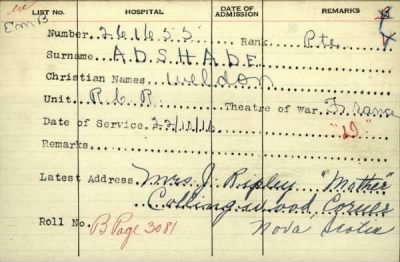 LIST No. HOSPITAL DATE OF ADMISSION REMARKS
Em B
Number 261655 Rank Pte
Surname ADSHADE
Christian Names Weldon
Unit R.C.R. Theatre of War France
Date of Service 22/11/16 "D"
Remarks
Latest Address Mrs. J. Ripley "Mother"
Collingwood Corner
Roll No. B Page 3081 Nova Scotia